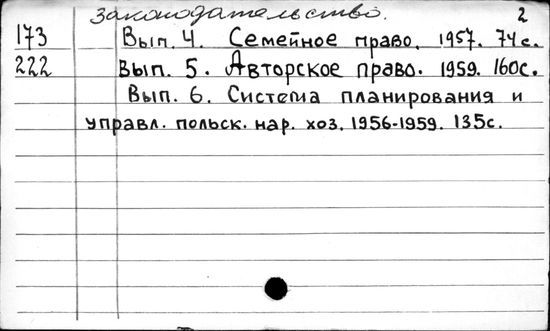 законодательство. 2
173 Вып. 4. Семейное право. 1957. 74 с.
222 Вып. 5. Авторское право. 1959. 160с.
Вып. 6. Система планирования и
управл. польск. нар. хоз. 1956-1959. 135с.